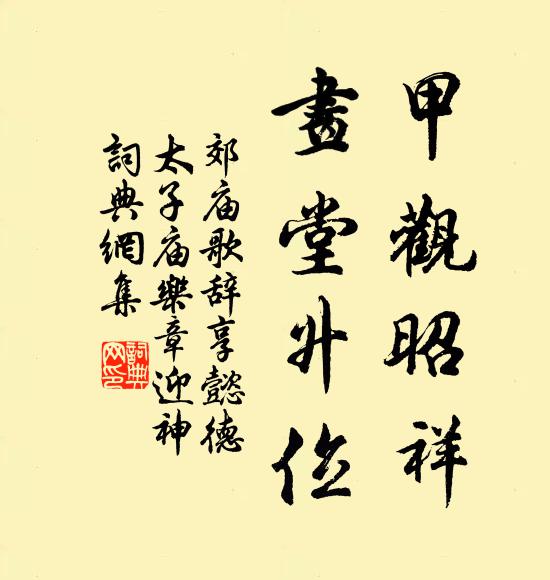 甲觀昭祥
畫堂升位
郊庙歌辞享懿德
太子庙樂章迎神
詞典網集
詞典
网印